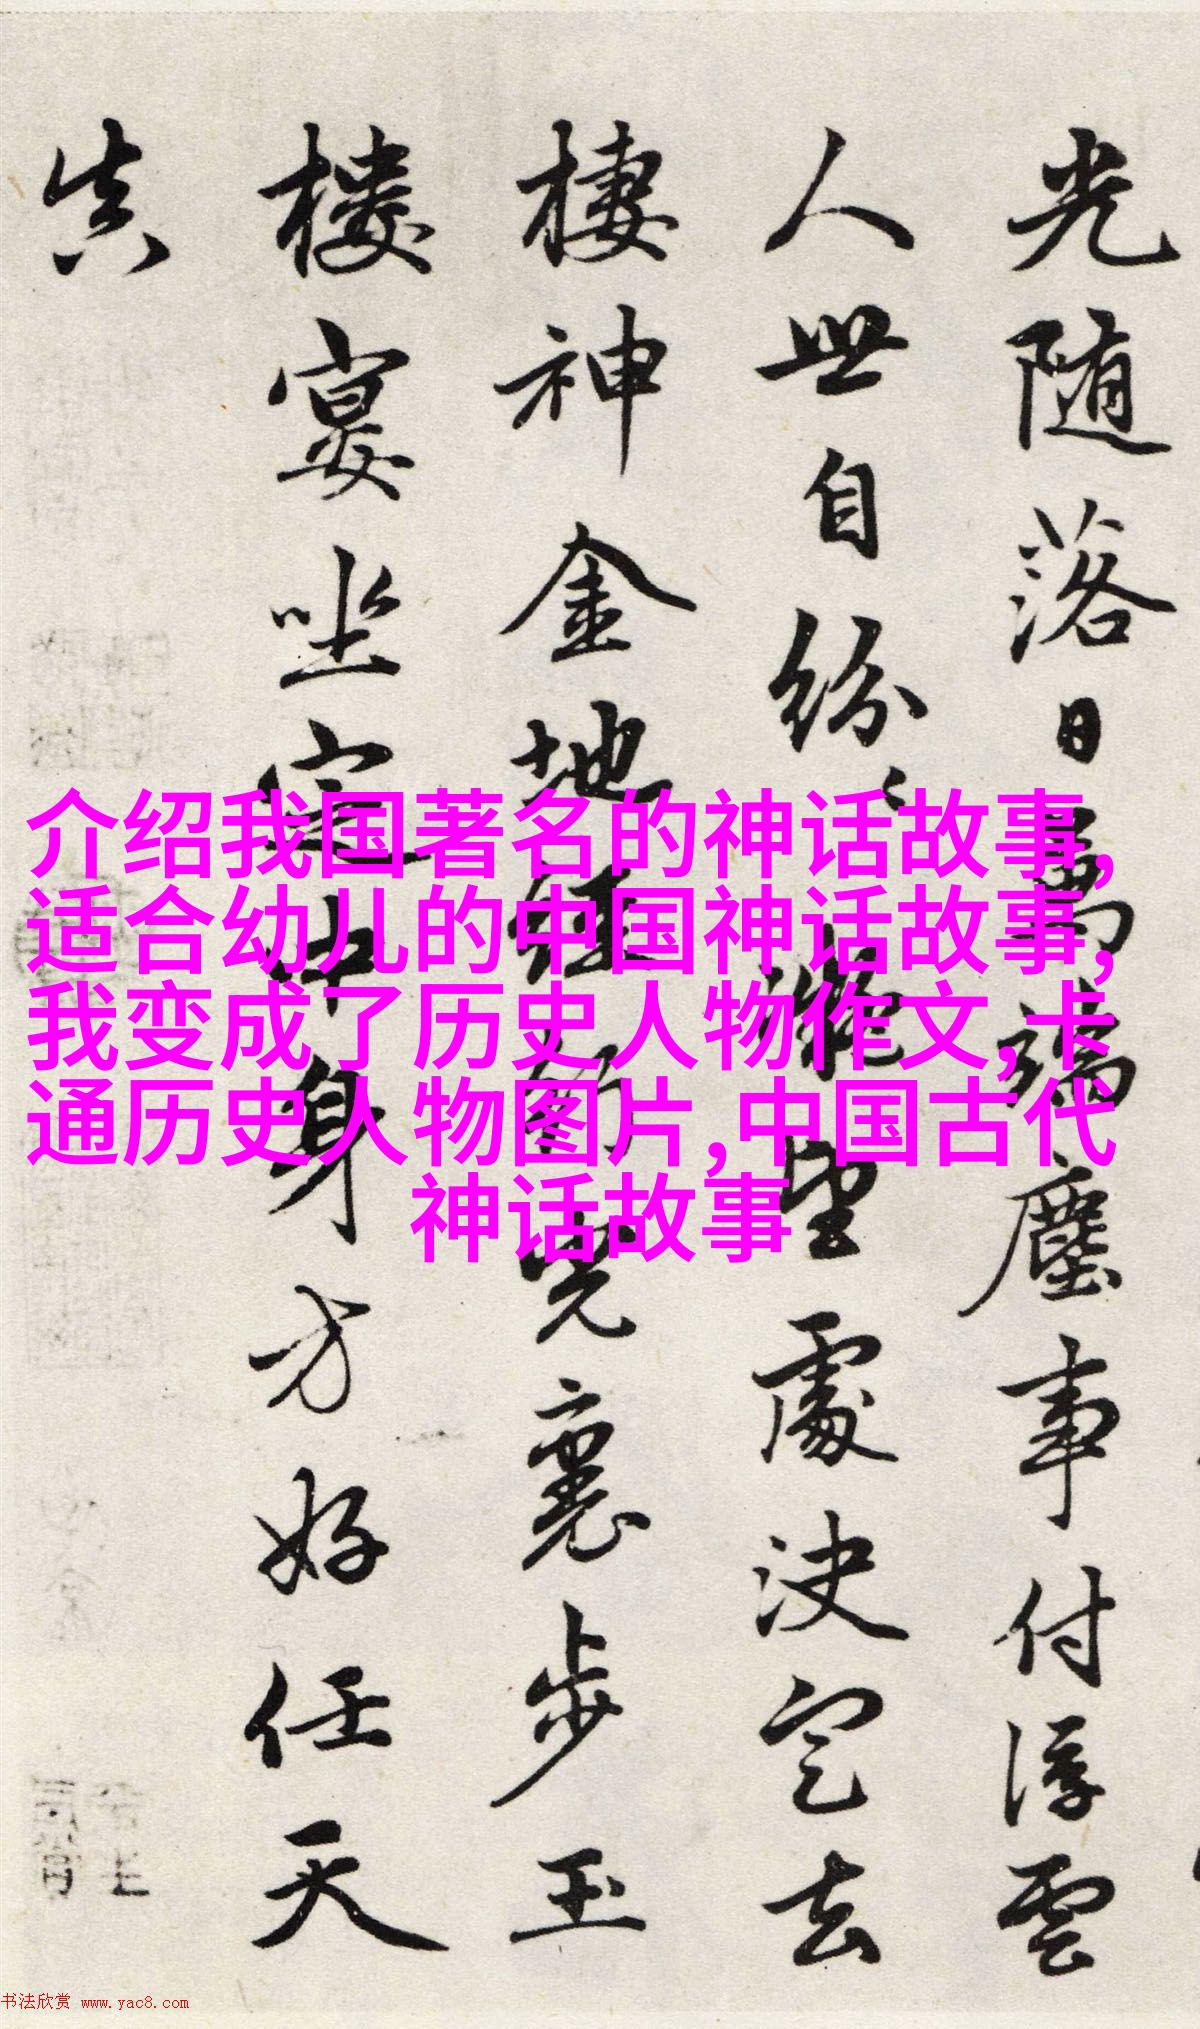 光随落日萬端塵事付浮雲
人世自紛〻望處決定去
棲神金地経行裏步玉
樓宴坐定中身方好任天
真
介绍我国著名的神话故事,
适合幼儿的中国神话故事,
我变成了历史人物作文,卡
通历史人物图片,中国古代
神话故事
书法欣赏 www.yac8.com